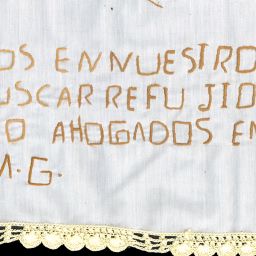 OS EN NUESTRO
USCAR REFUJIO
O AHOGADOS EN
M.G.